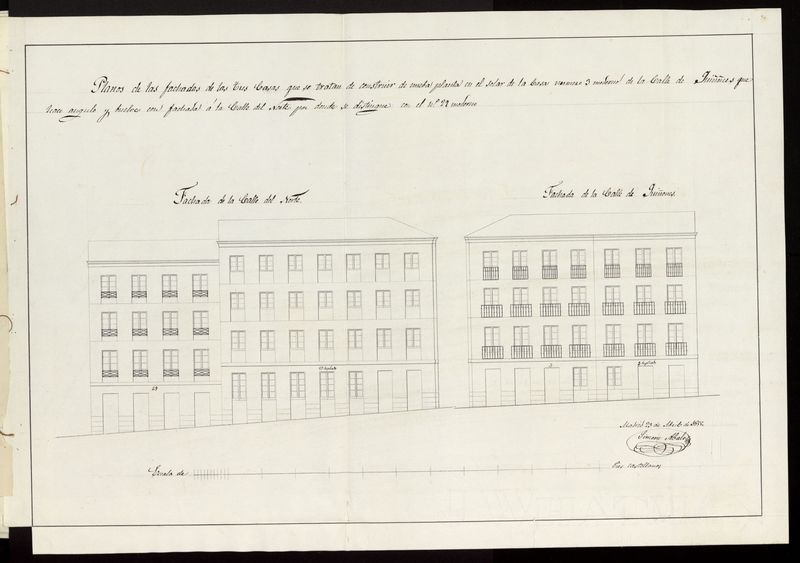 Planos de las fachadas de las tres Casas que se tratan de construir de nueba planta en el solar de la Casa numero 3 moderno de la Calle de Quiñones que
hace angulo y buelve con fachada á la Calle del Norte por donde se distingue con el nº 22 moderno
Fachada de la Calle del Norte.
Fachada de la Calle de Quiñones.
3
Madrid 23 de de 1872
Simeon Abalos
Escala de
Pies castellanos